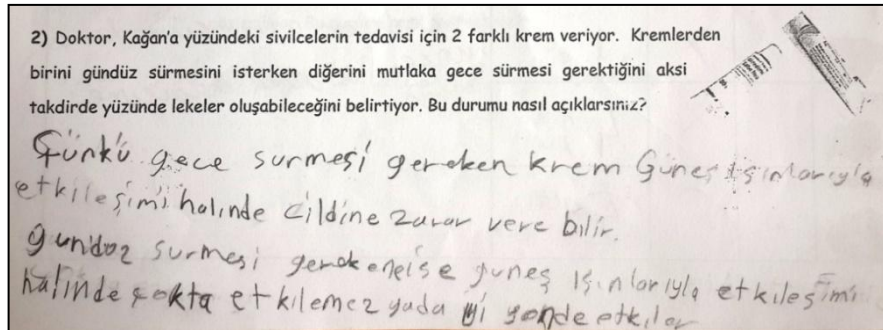 2) Doktor, Kağan'a yüzündeki sivilcelerin tedavisi için 2 farklı krem veriyor. Kremlerden
birini gündüz sürmesini isterken diğerini mutlaka gece sürmesi gerektiğini aksi
takdirde yüzünde lekeler oluşabileceğini belirtiyor. Bu durumu nasıl açıklarsınız?
Çünkü gece surmesi gereken krem Güneş ışınlarıyla
etkileşimi halinde cildine zarar vere bilir.
gunduz surmesi gerekeneise guneş ışınlarıyla etkileşimi
halinde çokta etkilemez yada iyi yonde etkiler